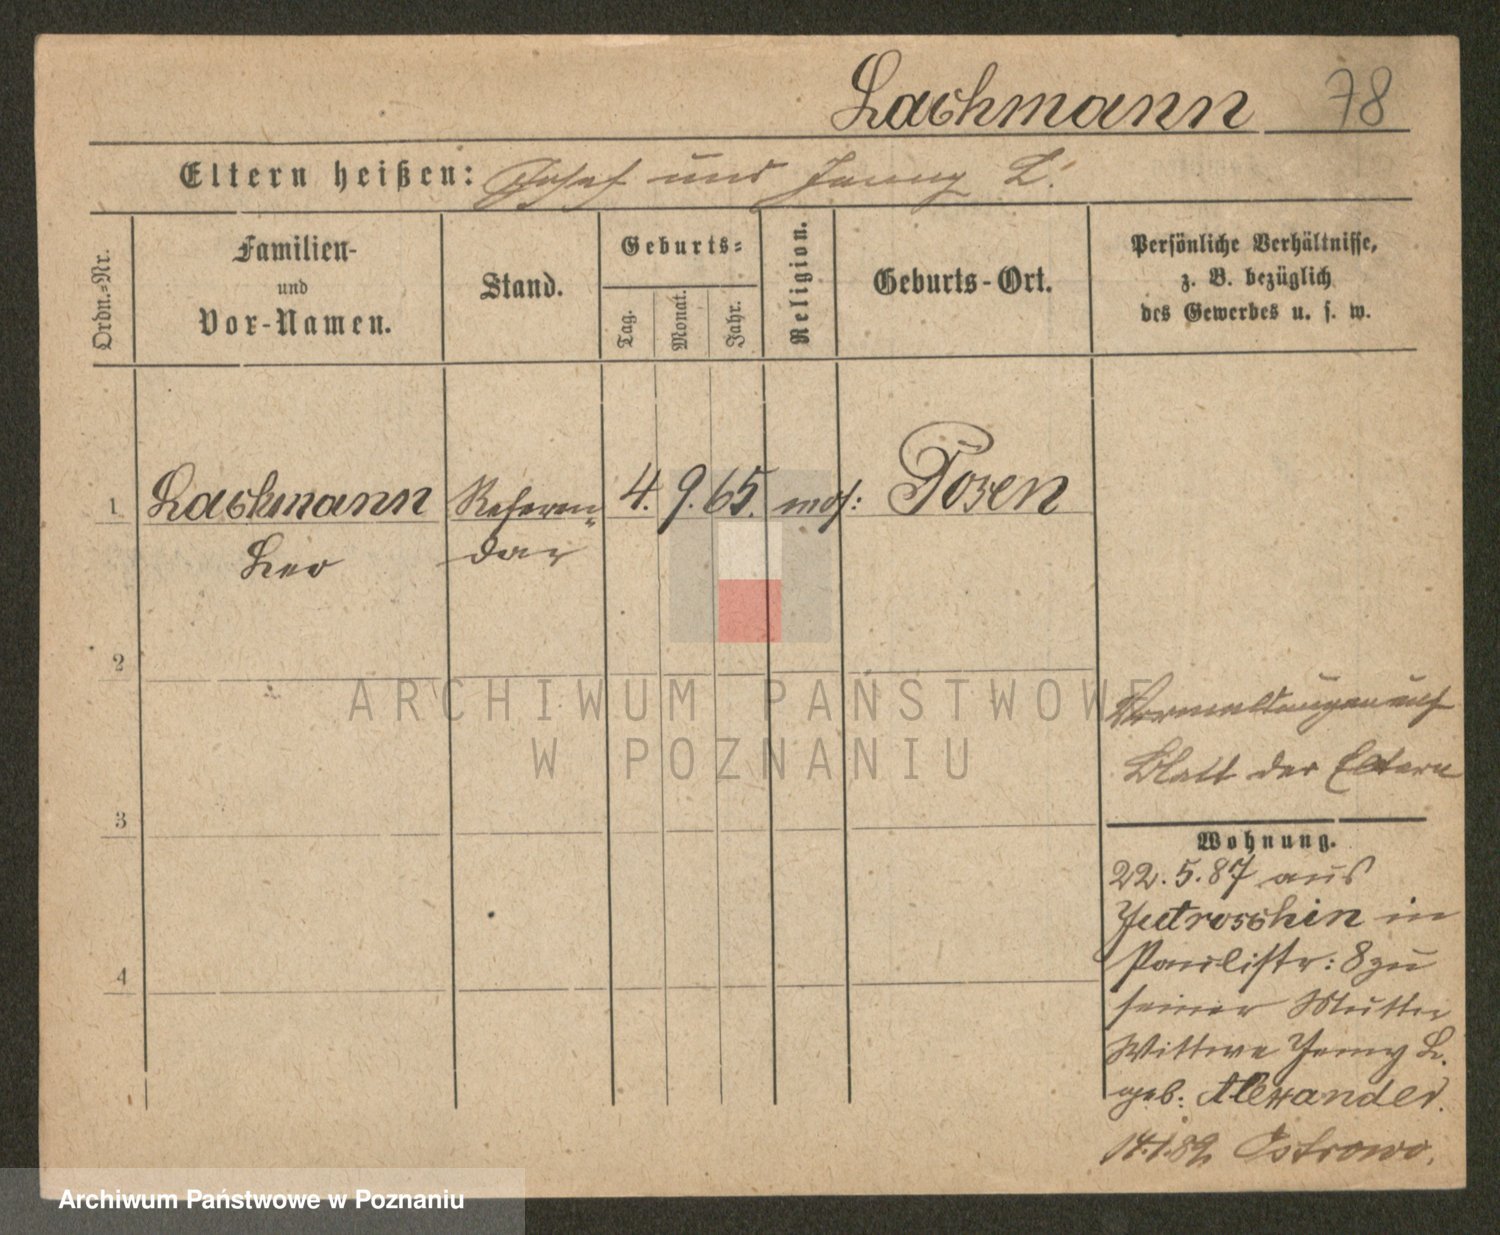 Lachmann 78
Eltern heißen: Josef und Jenny L.
Ordn.-Nr.
Familien-
und
Vor-Namen.
Stand.
Geburts-
Tag.
Monat.
Jahr.
Religion.
Geburts-Ort.
Persönliche Verhältnisse,
z. B. bezüglich
des Gewerbes u. s. w.
1 Lachmann Referen- 4. 9. 65. mos: Posen
Leo dar
2
3
4
auf
Blatt der Eltern
Wohnung.
22.5.87 aus
Jutroschin in
Paulistr: 8 zu
seiner Mutter
Wittwe Jenny L.
geb: Alexander.
Ostrowo.
ARCHIWUM PAŃSTWOWE
W POZNANIU
Archiwum Państwowe w Poznaniu